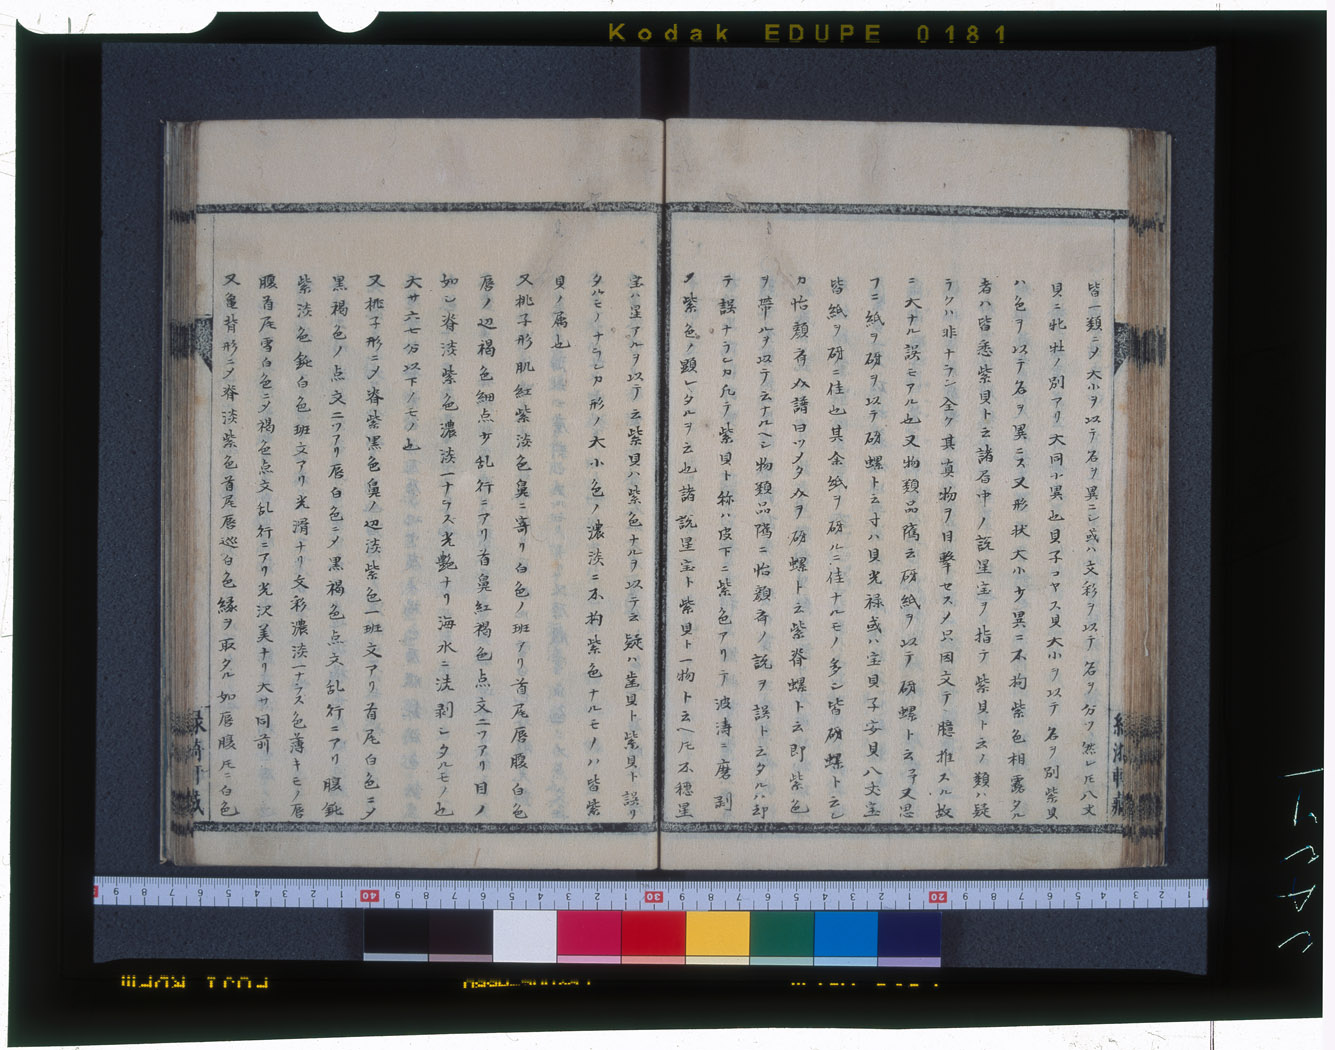 Kodak EDUPE 0181
皆一類ニメ大小ヲ以テ名ヲ異ニシ或ハ文彩ヲ以テ名ヲ分ツ然レ𪜈八丈
貝ニ牝牡ノ別アリ大同小異也貝子コヤス貝大小ヲ以テ名ヲ別紫貝
ハ色ヲ以テ名ヲ異ニス又形状大小少異ニ不拘紫色相露タル
者ハ皆悉紫貝ト云諸居中ノ説星宝ヲ指テ紫貝ト云ノ類ハ疑
ラクハ非ナラン全ク其真物ヲ目撃セスメ只因文テ臆推スル故
ニ大ナル誤モアル也又物類品隲云砑紙ヲ以テ砑螺ト云予又思
フニ紙ヲ砑ヲ以テ砑螺ト云寸ハ貝光禄或ハ宝貝子安貝八文宝
皆紙ヲ砑ニ佳也其余紙ヲ砑ルニ佳ナルモノ多シ皆砑螺ト云シ
カ怡顔斎介譜曰ツメタ介ヲ砑螺ト云紫脊螺ト云即紫色
ヲ帯ルヲ以テ云ナルヘシ物類品隲ニ怡顔斎ノ説ヲ誤ト云タルハ却
テ誤ナランカ凡テ紫貝ト称ハ皮下ニ紫色アリテ波涛ニ磨剥
メ紫色ノ顕レタルヲ云也諸説星宝ト紫貝ト一物ト云ヘ𪜈不穏星
宝ハ星アルヲ以テ云紫貝ハ紫色ナルヲ以テ云疑ハ蚩貝ト紫貝ト誤リ
タルモノナランカ形ノ大小色ノ濃淡ニ不拘紫色ナルモノハ皆紫
貝ノ属也
又桃子形肌紅紫淡色鼻ニ寄リ白色ノ班アリ首尾唇腹白色
唇ノ辺褐色細点少乱行ニアリ首鼻紅褐色点文二ツアリ目ノ
如シ脊淡紫色濃淡一ナラス光艶ナリ海水ニ洗剥シタルモノ也
大サ六七分以下ノモノ也
又桃子形ニメ脊紫黒色鼻ノ辺淡紫色一班文アリ首尾白色ニメ
黒褐色ノ点文二ツアリ唇白色ニメ黒褐色点文乱行ニアリ腹鈍
紫淡色鈍白色班文アリ光滑ナリ文彩濃淡一ナラス色薄キモノ唇
腹首尾雪白色ニメ褐色点文乱行ニアリ光沢美ナリ大サ同前
又亀背形ニメ脊淡紫色首尾唇巡白色縁ヲ取タル如唇腹𪜈ニ白色